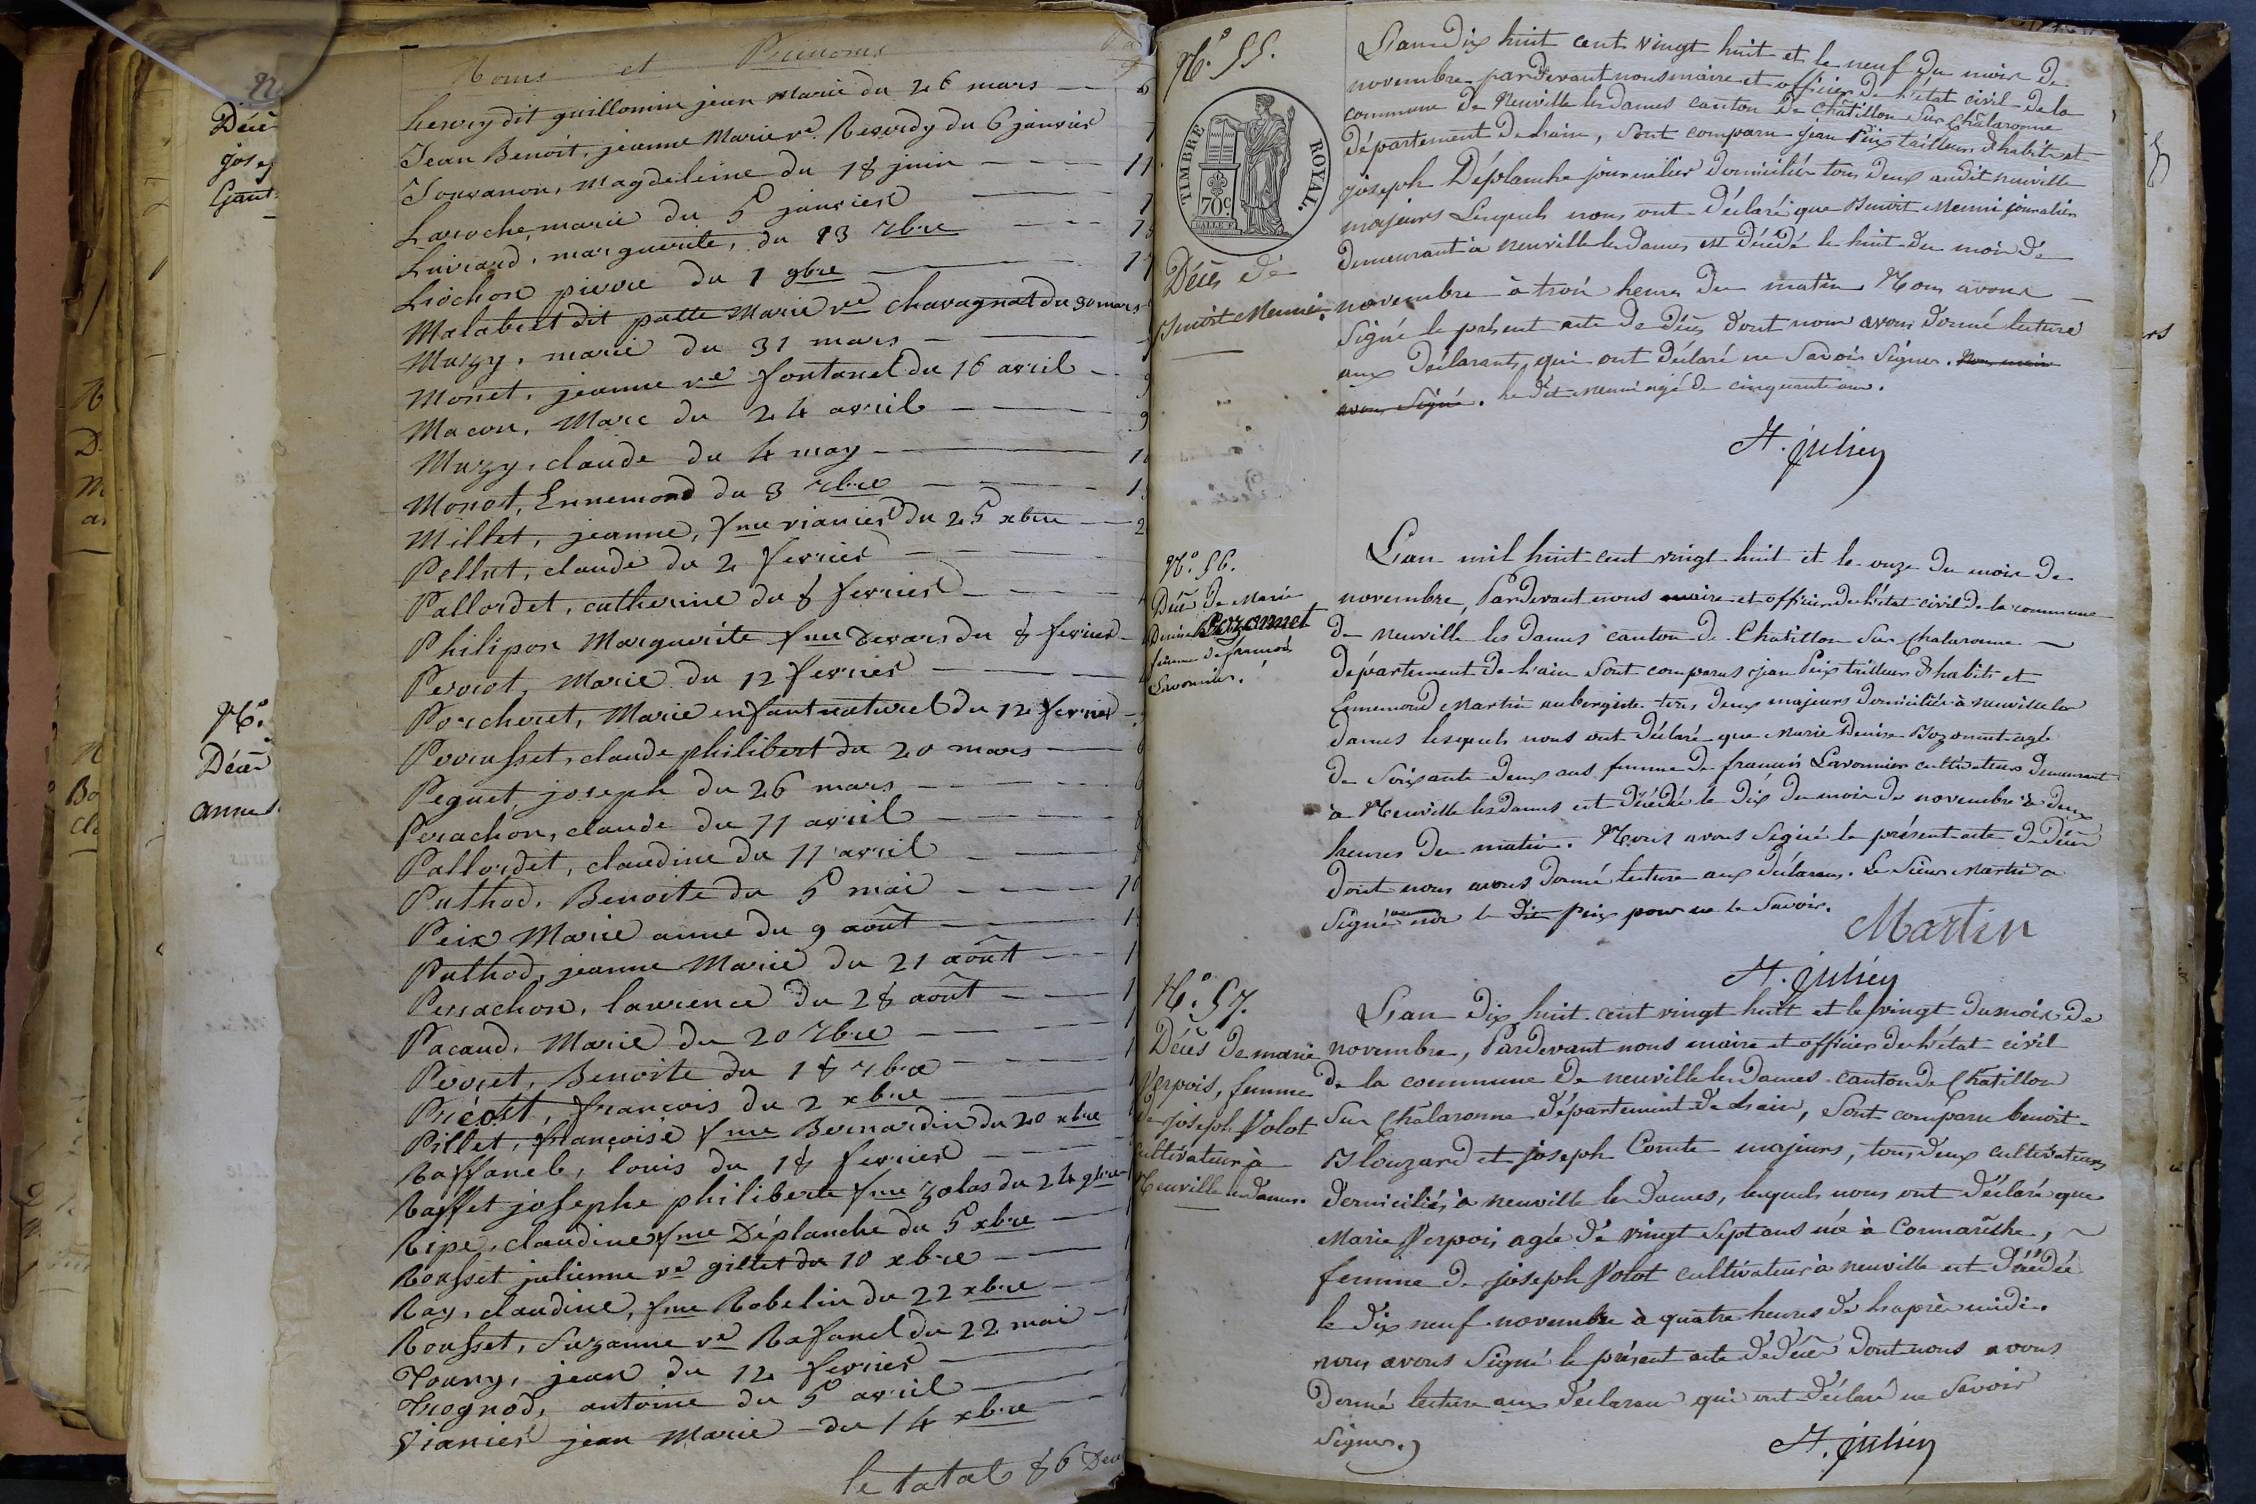 92
Décè
josep
Gaut
N°.
Décè
anne
Noms et Prenoms
henry dit guillomin jean Marie du 26 mars
Jean Benoit, jeanne Marie ve. Reverdy du 6 janvier
Jouvanon, Magdeleine du 18 juin
Laroche, marie du 5 janvier
Luivard, marguerite, du 13 7bre
Liochon pierre du 1 9bre
Malabret dit patte Marie ve chavagnat du 30 mars
Muzy, marie du 31 mars
Monet, jeanne ve fontanel du 16 avril
Macon, Marc du 24 avril
Muzy, claude du 4 may
Monot, Ennemond du 3 7bre
Millet, jeanne, fme vianier du 25 xbre
Pellut, claude du 2 fevrier
Pallordet, catherine du 8 fevrier
Philipon Marguerite fme Devars du 8 fevrier
Perriot, Marie du 12 fevrier
Porcheret, Marie enfant naturel du 12 fevrier
Perrusset, claude philibert du 20 mars
Peguet, joseph du 26 mars
Perrachon, claude du 11 avril
Pallordet, claudine du 11 avril
Puthod, Benoite du 5 mai
Peix Marie anne du 9 août
Puthod, jeanne Marie du 21 août
Perrachon, laurence du 28 août
Pacaud, Marie du 20 7bre
Perret, Benoite du 18 7bre
Priéost, françois du 2 xbre
Pillet, françoise fme Bernardin du 20 xbre
Raffanel, louis du 18 fevrier
Raffet josephe philiberte fme zolas du 24 9bre
Ripe, claudine fme Déplanche du 5 xbre
Rousset julienne ve gillet du 10 xbre
Ray, claudine, fme Robelin du 22 xbre
Rousset, Suzanne ve Rafanel du 22 mai
Toury, jean du 12 fevrier
Trognod, antoine du 5 avril
Vianier jean Marie du 14 xbre
le total 86 Decè
N°. 55.
TIMBRE ROYAL.
70c.
Décès de
Benoit Meunier.
L'an dix huit cent vingt huit et le neuf du mois de
novembre pardevant nous maire et officier de l'état civil de la
commune de Neuville les dames canton de Châtillon sur Chalaronne
département de l'ain, sont comparu jean Peix tailleur d'habits et
joseph Déplanche journalier domiciliés tous deux audit neuville
majeurs Lesquels nous ont déclaré que Benoit Meunier journalier
demeurant à neuville les dames est décédé le huit du mois de
novembre à trois heures du matin Nous avons
signé le présent acte de décès dont nous avons donné lecture
aux déclarants, qui ont déclaré ne savoir signer.
avons signé. le dit meunier agé de cinquante ans.
St. julien
N°. 56.
Décès de Marie
Denise Bozonnet
femme de françois
Lavonnier.
L'an mil huit cent vingt huit et le onze du mois de
novembre, Pardevant nous maire et officier de l'état civil de la commune
de neuville les dames canton de Chatillon sur chalaronne
département de l'ain sont comparus jean Peix tailleur d'habits et
Ennemond Martin aubergiste tous deux majeurs domiciliés à neuville les
dames lesquels nous ont déclaré que Marie Denise Bozonnet agée
de soixante deux ans femme de françois Lavonnier cultivateur demeurant
à Neuville les dames est décédée le dix du mois de novembre à deux
heures du matin. Nous avons signé le présent acte de décès
dont nous avons donné lecture aux déclarans. Le sieur Martin a
signé avec nous le dit Peix pour ne le savoir.
Martin
St. julien
N°. 57.
Décès de marie
Verpois, femme
de joseph Volot
cultivateur à
Neuville les dames.
L'an dix huit cent vingt huit et le vingt du mois de
novembre, Pardevant nous maire et officier de l'état civil
de la commune de neuville les dames canton de Châtillon
sur Chalaronne département de l'ain, sont comparu benoit
Blouzard et joseph Comte majeurs, tous deux cultivateurs
domiciliés à neuville les dames, lesquels nous ont déclaré que
Marie Verpois agée de vingt sept ans née à Cormarèche,
femme de joseph Volot cultivateur à neuville est décédée
le dix neuf novembre à quatre heures de l'après midi.
nous avons signé le présent acte de décès dont nous avons
donné lecture aux déclarans qui ont déclaré ne savoir
signer.
St. julien